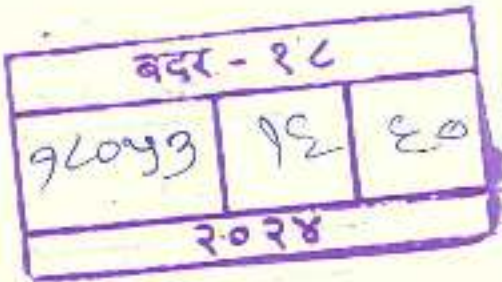 बदर - १८
१८०५३ १६ ६०
२०२४